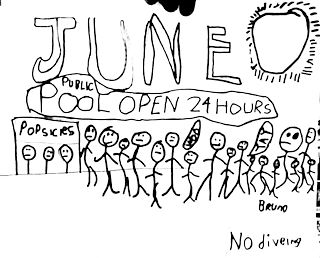 JUNE
PUBLIC
POOL OPEN 24 HOURS
POPSICKLS
BRUNO
No diveing